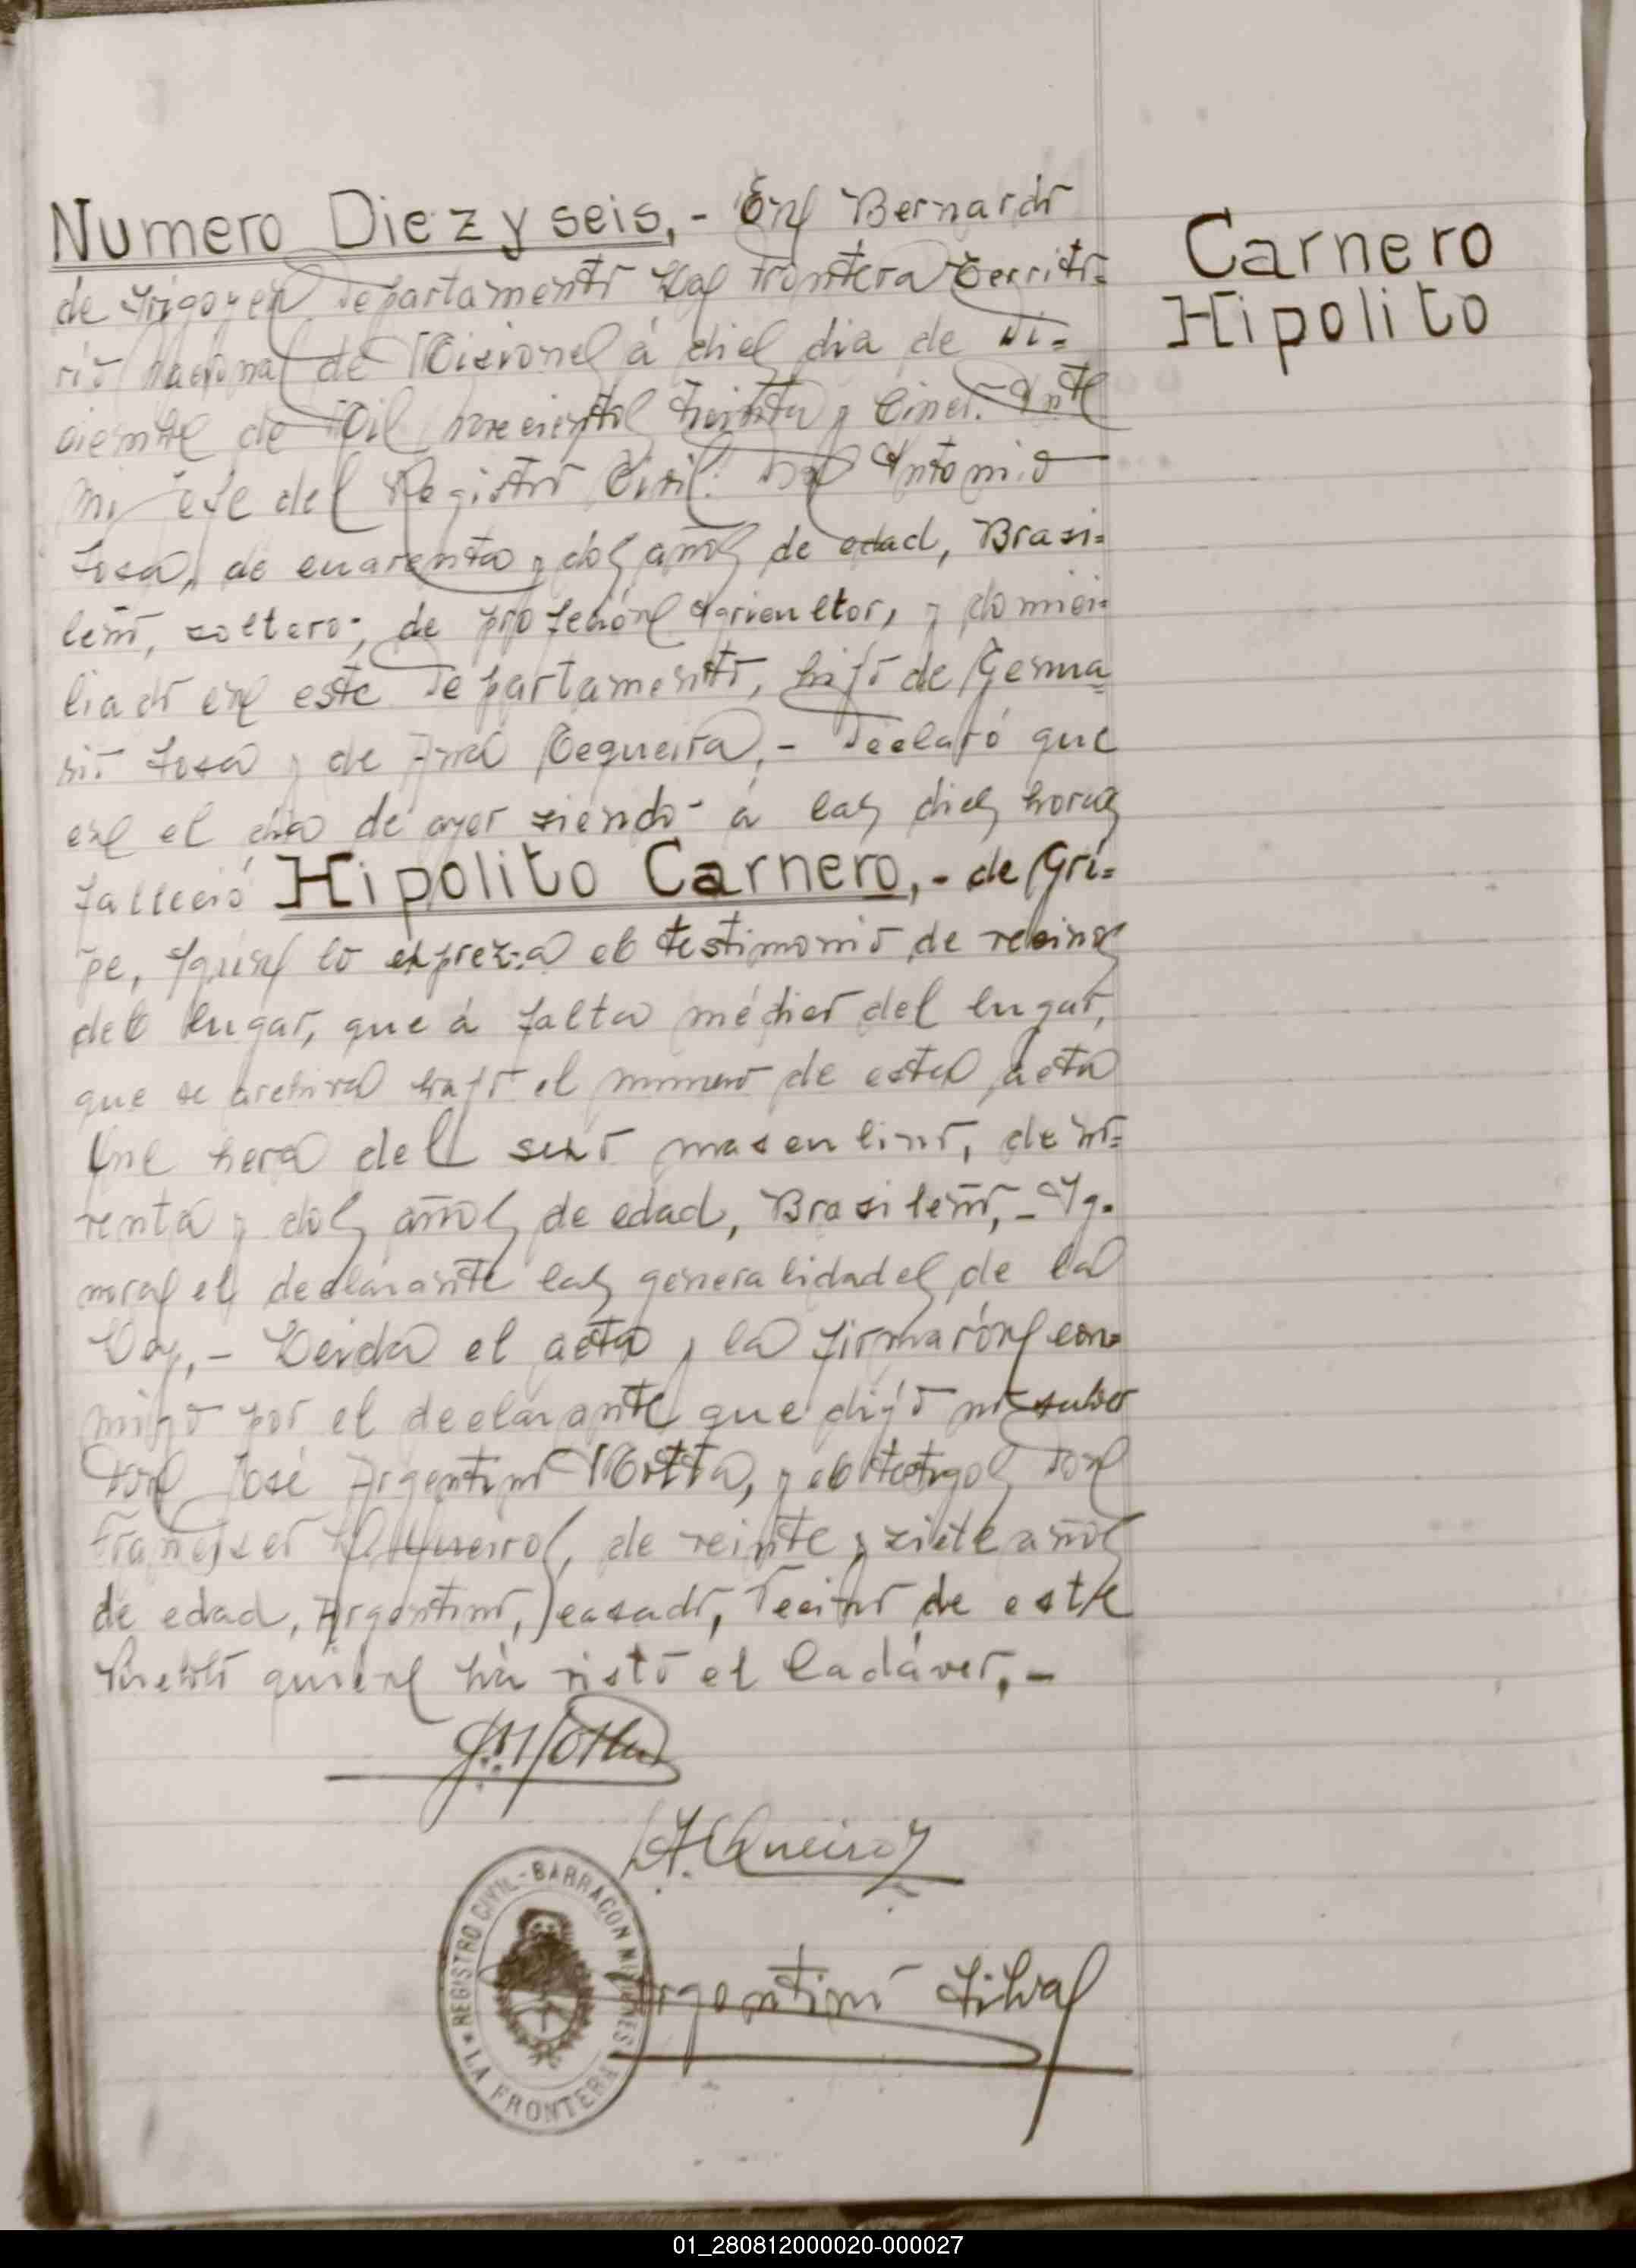 Numero Diez y seis,- En Bernardo
de Irigoyen Departamento La Frontera Territo=
rio Nacional de Misiones á diez dia de Di=
ciembre de Mil novecientos treinta y Cinco. Ante
mi Jefe del Registro Civil: Don Antonio
Sosa, de cuarenta y dos años de edad, Brasi=
leño, soltero, de profeción Agricultor, y domici=
liado en este Departamento, hijo de Genua
sio Sosa y de Ana Cequeira,- Declaró que
en el dia de ayer siendo á las diez horas
falleció Hipolito Carnero,- de Gri=
pe, según lo expreza el testimonio de vecinos
del lugar, que á falta médico del lugar,
que se archiva bajo el numero de esta acta
Que hera del sexo masculino, de no=
venta y dos años de edad, Brasileño,- Ig.
norando el declarante las generalidades de la
Ley,- Leida el acta y la firmarón con=
migo por el declarante que dijó no saber
Don José Argentino Motta, y el testigo Don
Francisco Queiroz, de veinte y ziete años
de edad, Argentino, casado, Vecino de este
Pueblo quien há visto el Cadáver,-
Carnero
Hipolito
J. A. Motta
A. Queiroz
Argentino Silva
REGISTRO CIVIL - BARRACON MISIONES
LA FRONTERA
01_280812000020-000027